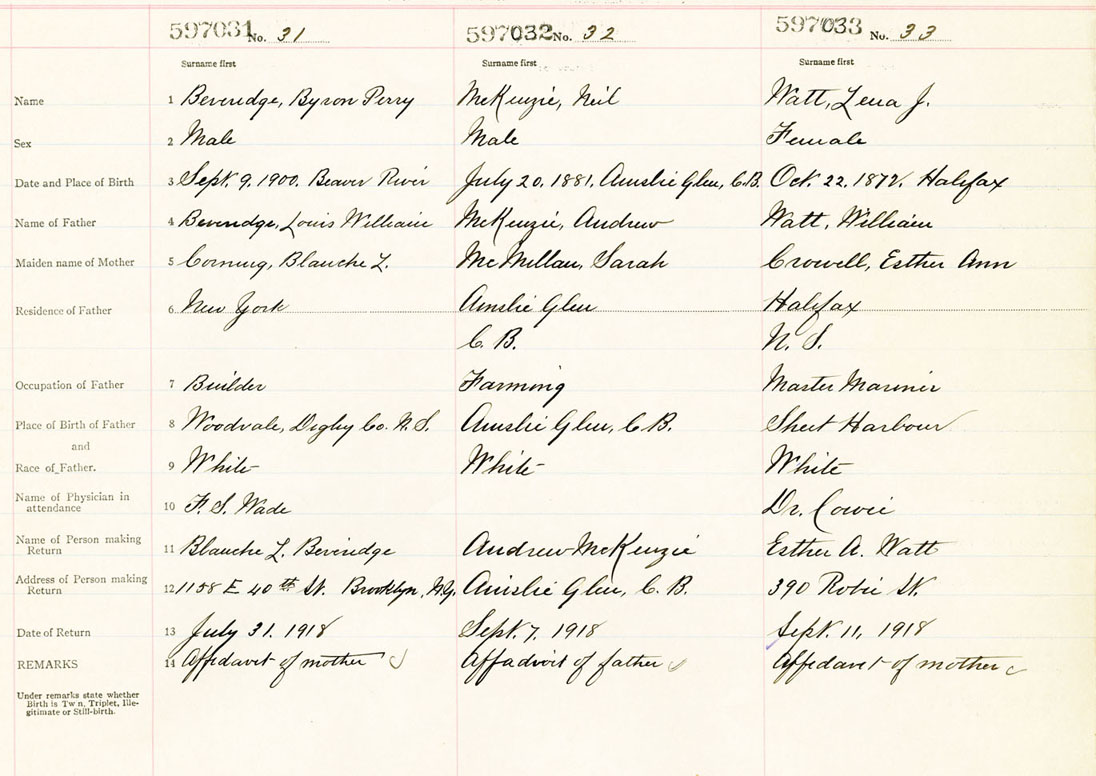 597031 No. 31 597032 No. 32 597033 No. 33
Surname first Surname first Surname first
Name 1 Beveridge, Byron Perry McKenzie, Neil Watt, Lena J.
Sex 2 Male Male Female
Date and Place of Birth 3 Sept. 9, 1900. Beaver River July 20, 1881, Ainslie Glen, C.B. Oct. 22, 1872. Halifax
Name of Father 4 Beveridge, Louis William McKenzie, Andrew Watt, William
Maiden name of Mother 5 Corning, Blanche L. McMillan, Sarah Crowell, Esther Ann
Residence of Father 6 New York Ainslie Glen Halifax
C. B. N. S.
Occupation of Father 7 Builder Farming Master Mariner
Place of Birth of Father 8 Woodvale, Digby Co. N. S. Ainslie Glen, C. B. Sheet Harbour
and
Race of Father. 9 White White White
Name of Physician in
attendance 10 F. S. Wade Dr. Cowie
Name of Person making
Return 11 Blanche L. Beveridge Andrew McKenzie Esther A. Watt
Address of Person making
Return 12 1158 E 40th St. Brooklyn, N.Y. Ainslie Glen, C. B. 390 Robie St.
Date of Return 13 July 31. 1918 Sept. 7. 1918 Sept. 11, 1918
REMARKS 14 Affidavit of mother Affadvit of father Affedavit of mother
Under remarks state whether
Birth is Tw n, Triplet, Ille-
gitimate or Still-birth.